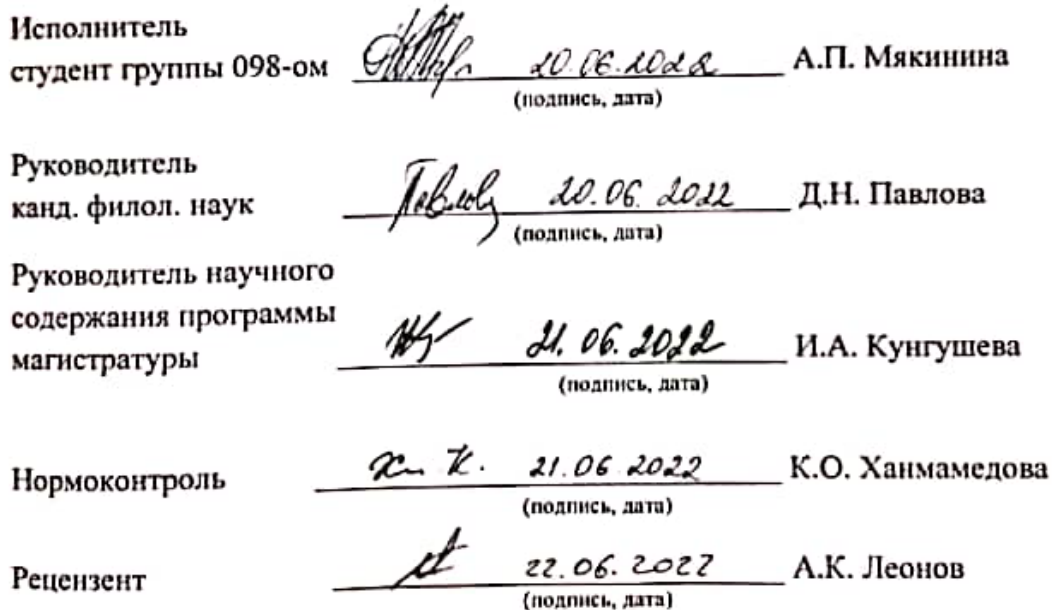 Исполнитель
студент группы 098-ом 20.06.2022 А.П. Мякинина
(подпись, дата)
Руководитель
канд. филол. наук Павлова 20.06.2022 Д.Н. Павлова
(подпись, дата)
Руководитель научного
содержания программы
магистратуры 21.06.2022 И.А. Кунгушева
(подпись, дата)
Нормоконтроль 21.06.2022 К.О. Ханмамедова
(подпись, дата)
Рецензент 22.06.2022 А.К. Леонов
(подпись, дата)